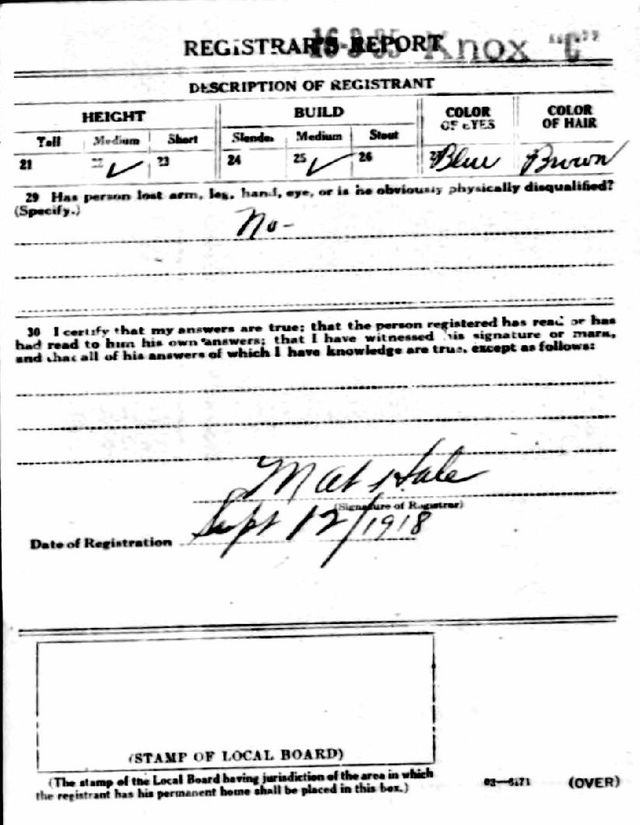 REGISTRAR'S REPORT Knox "C"
DESCRIPTION OF REGISTRANT
HEIGHT BUILD COLOR OF EYES COLOR OF HAIR
Tall Medium Short Slender Medium Stout
21 22 ✓ 23 24 25 ✓ 26 Blue Brown
29 Has person lost arm, leg, hand, eye, or is he obviously physically disqualified?
(Specify.)
No-
30 I certify that my answers are true; that the person registered has read or has
had read to him his own answers; that I have witnessed his signature or mark,
and that all of his answers of which I have knowledge are true, except as follows:
Mat Hale
(Signature of Registrar)
Date of Registration Sept 12/1918
(STAMP OF LOCAL BOARD)
(The stamp of the Local Board having jurisdiction of the area in which
the registrant has his permanent home shall be placed in this box.)
(OVER)